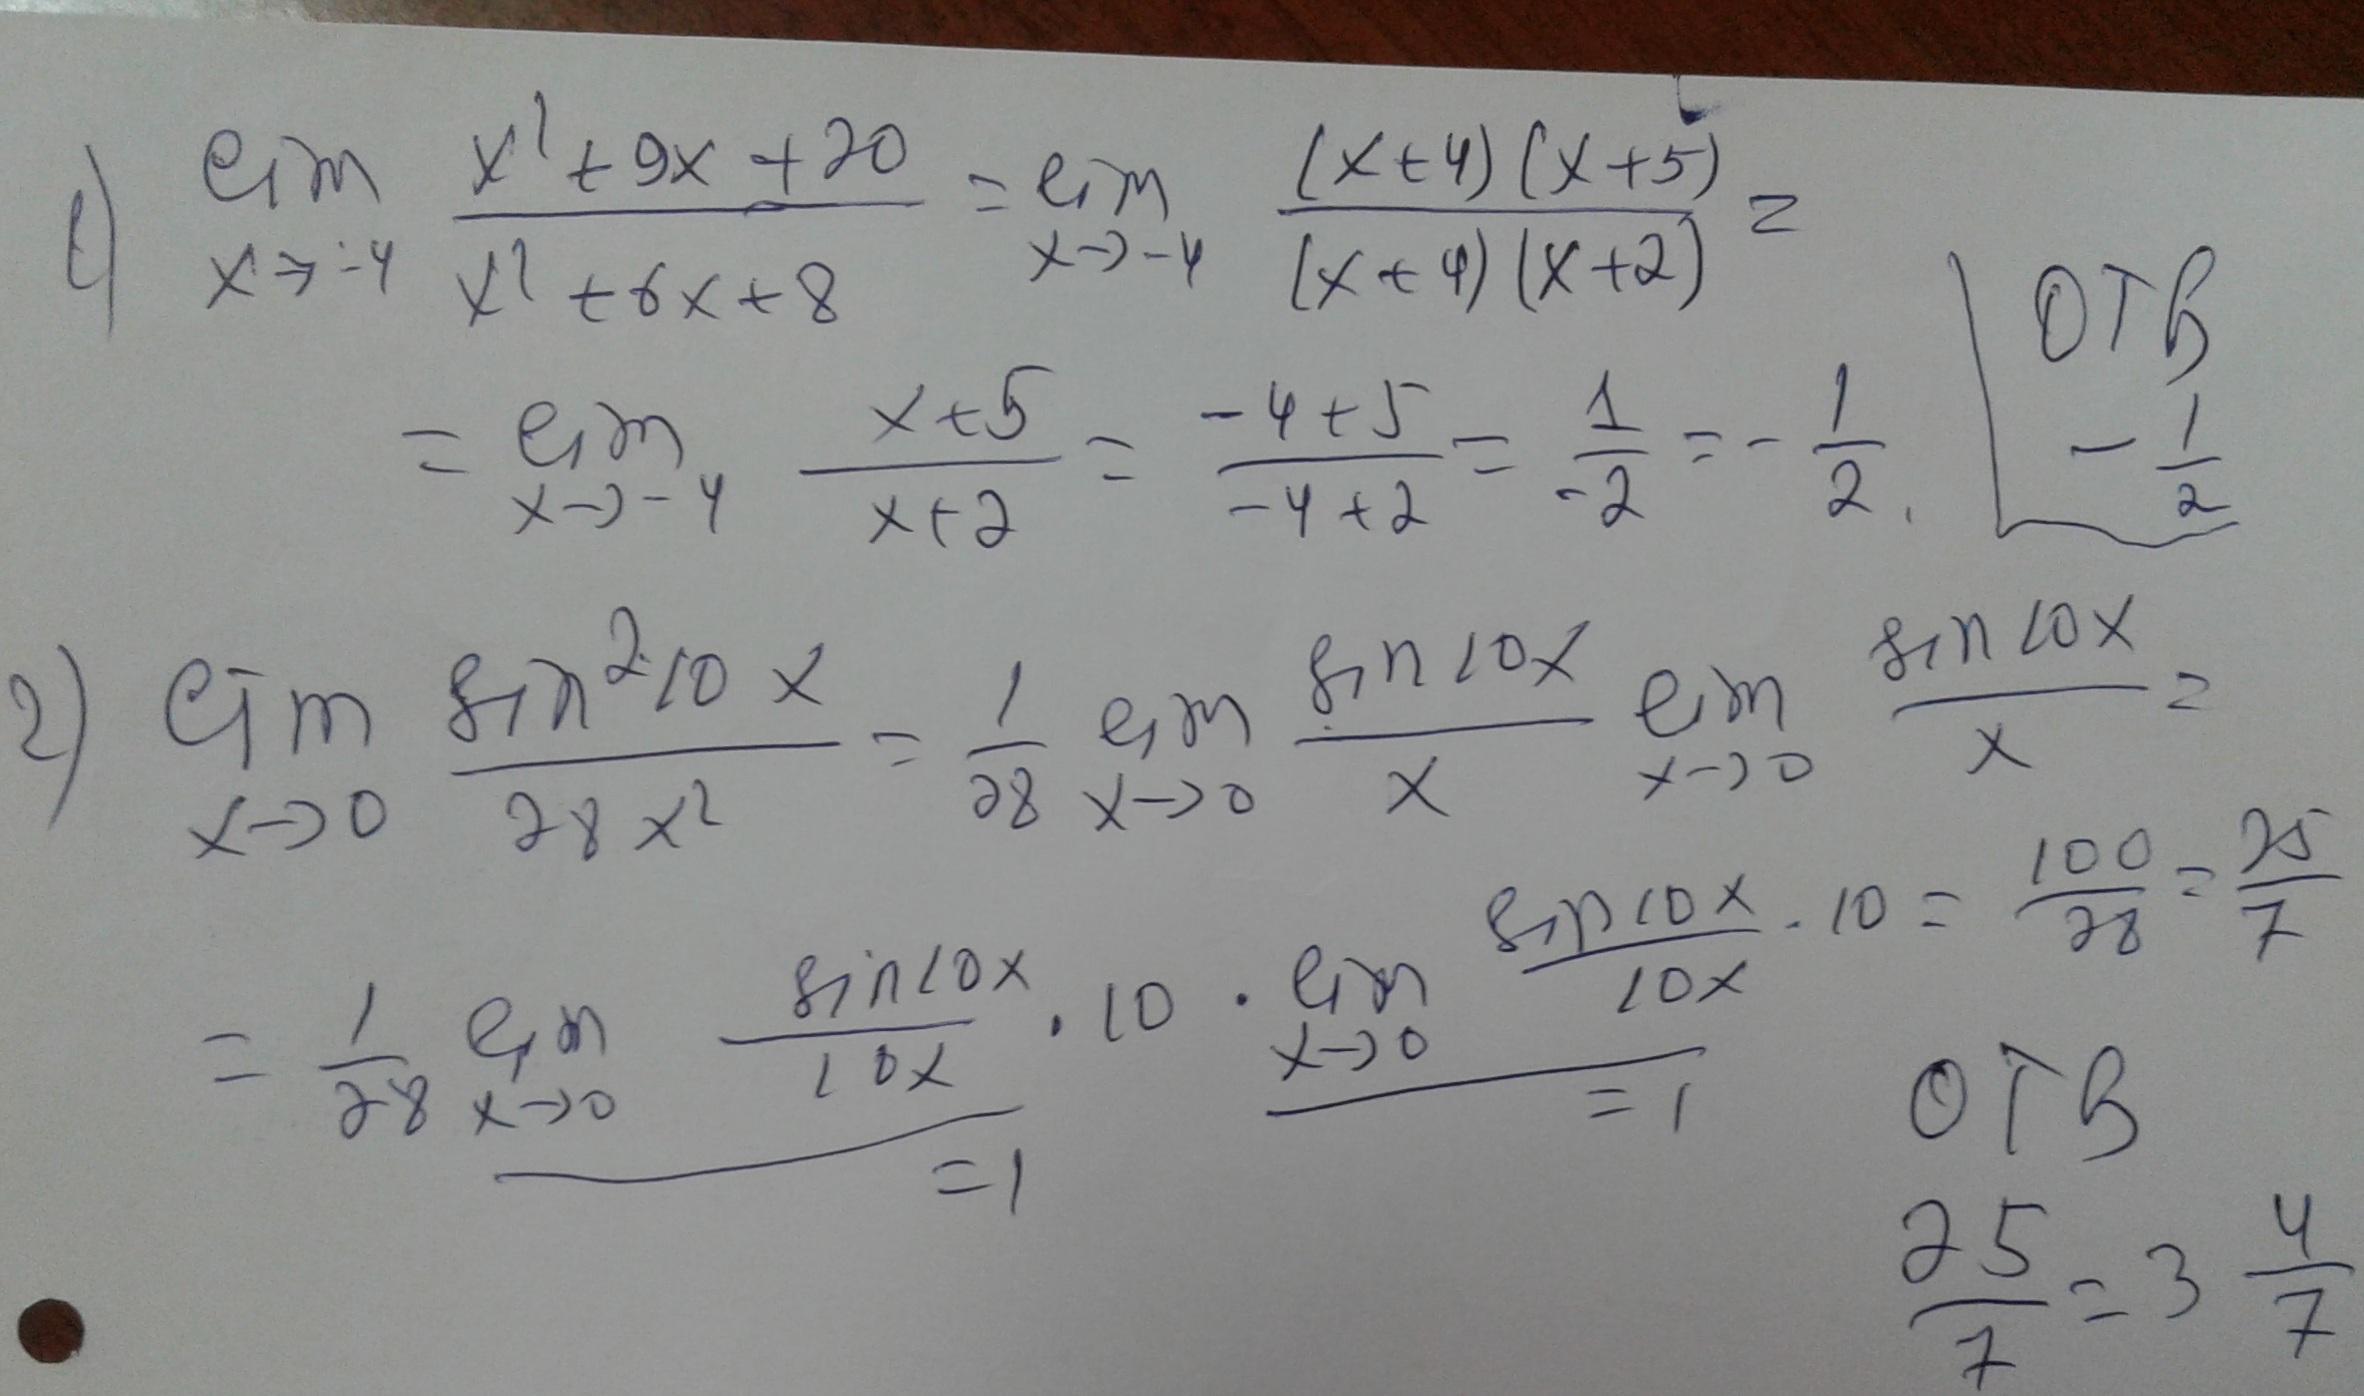 1) lim x→-4 (x²+9x+20)/(x²+6x+8) = lim x→-4 ((x+4)(x+5))/((x+4)(x+2)) =
= lim x→-4 (x+5)/(x+2) = (-4+5)/(-4+2) = 1/-2 = -1/2.
ОТВ
-1/2
2) lim x→0 (sin²10x)/(28x²) = 1/28 lim x→0 (sin10x)/x lim x→0 (sin10x)/x =
= 1/28 lim x→0 (sin10x)/(10x) · 10 · lim x→0 (sin10x)/(10x) · 10 = 100/28 = 25/7
=1 =1
ОТВ
25/7 = 3 4/7